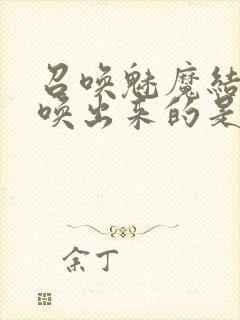 召唤魅魔结
唤出来的是
余丁